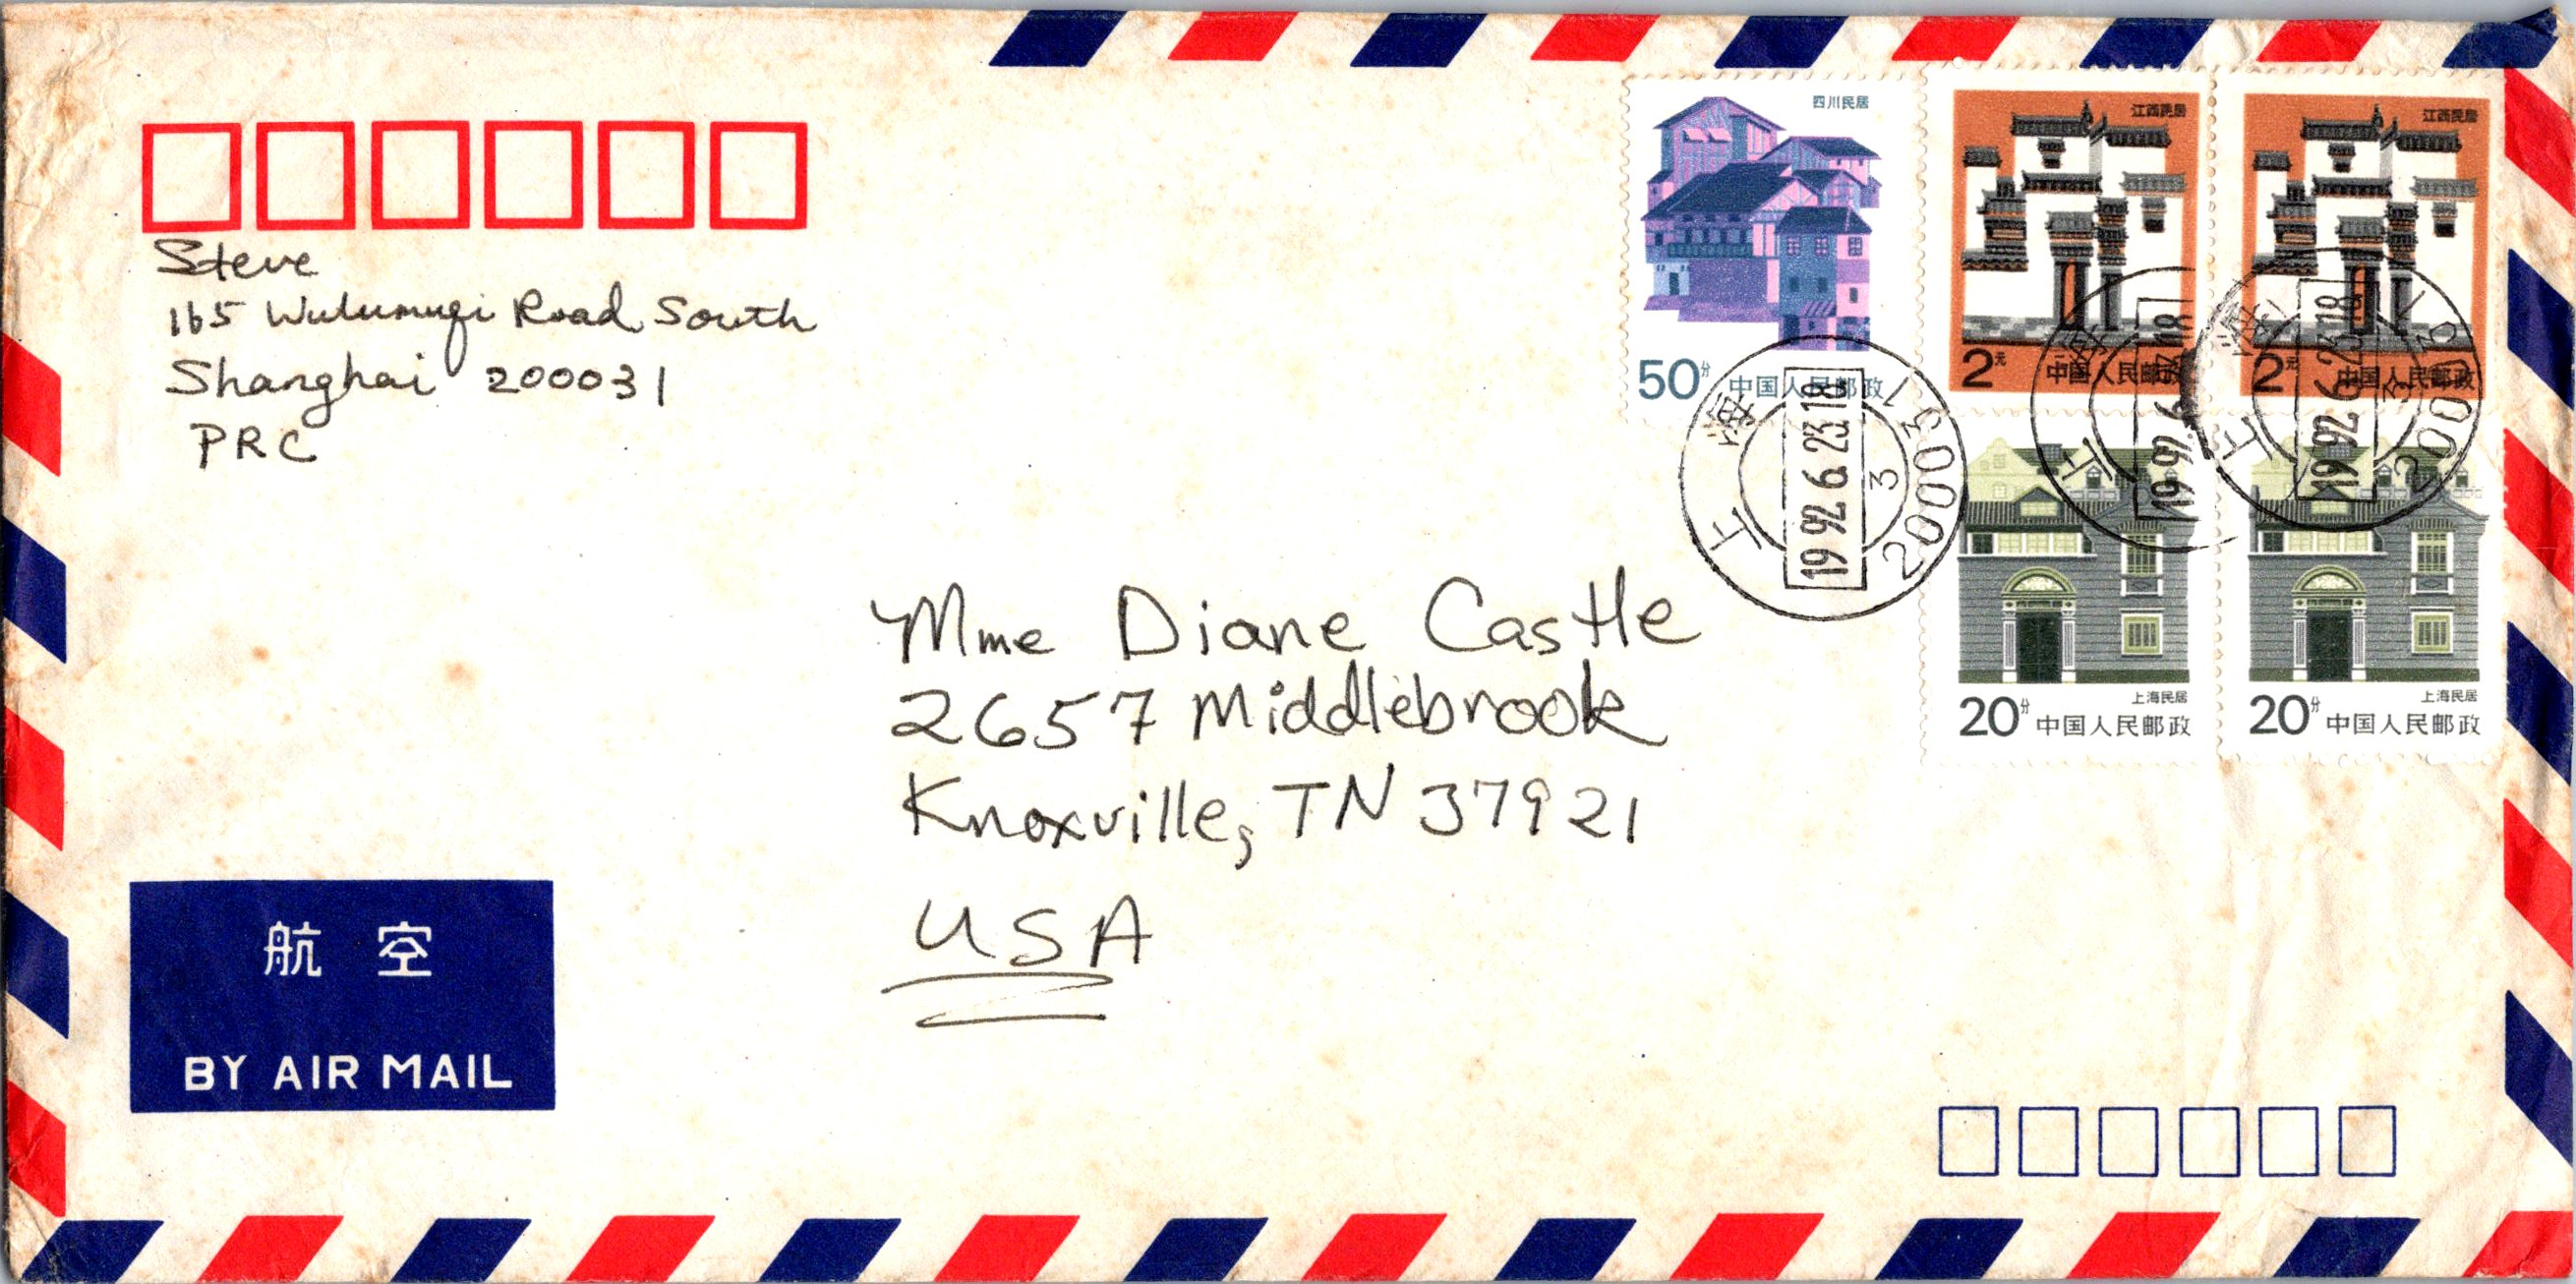 Steve
165 Wulumuqi Road South
Shanghai 200031
PRC
四川民居
50分 中国人民邮政
江西民居
2元 中国人民邮政
江西民居
2元 中国人民邮政
上海 19 92.6.23.18 3 200031
上海 19 92.6.23.18
上海 19 92.6.23.18 3 200031
上海民居
20分 中国人民邮政
上海民居
20分 中国人民邮政
Mme Diane Castle
2657 Middlebrook
Knoxville, TN 37921
USA
航空
BY AIR MAIL